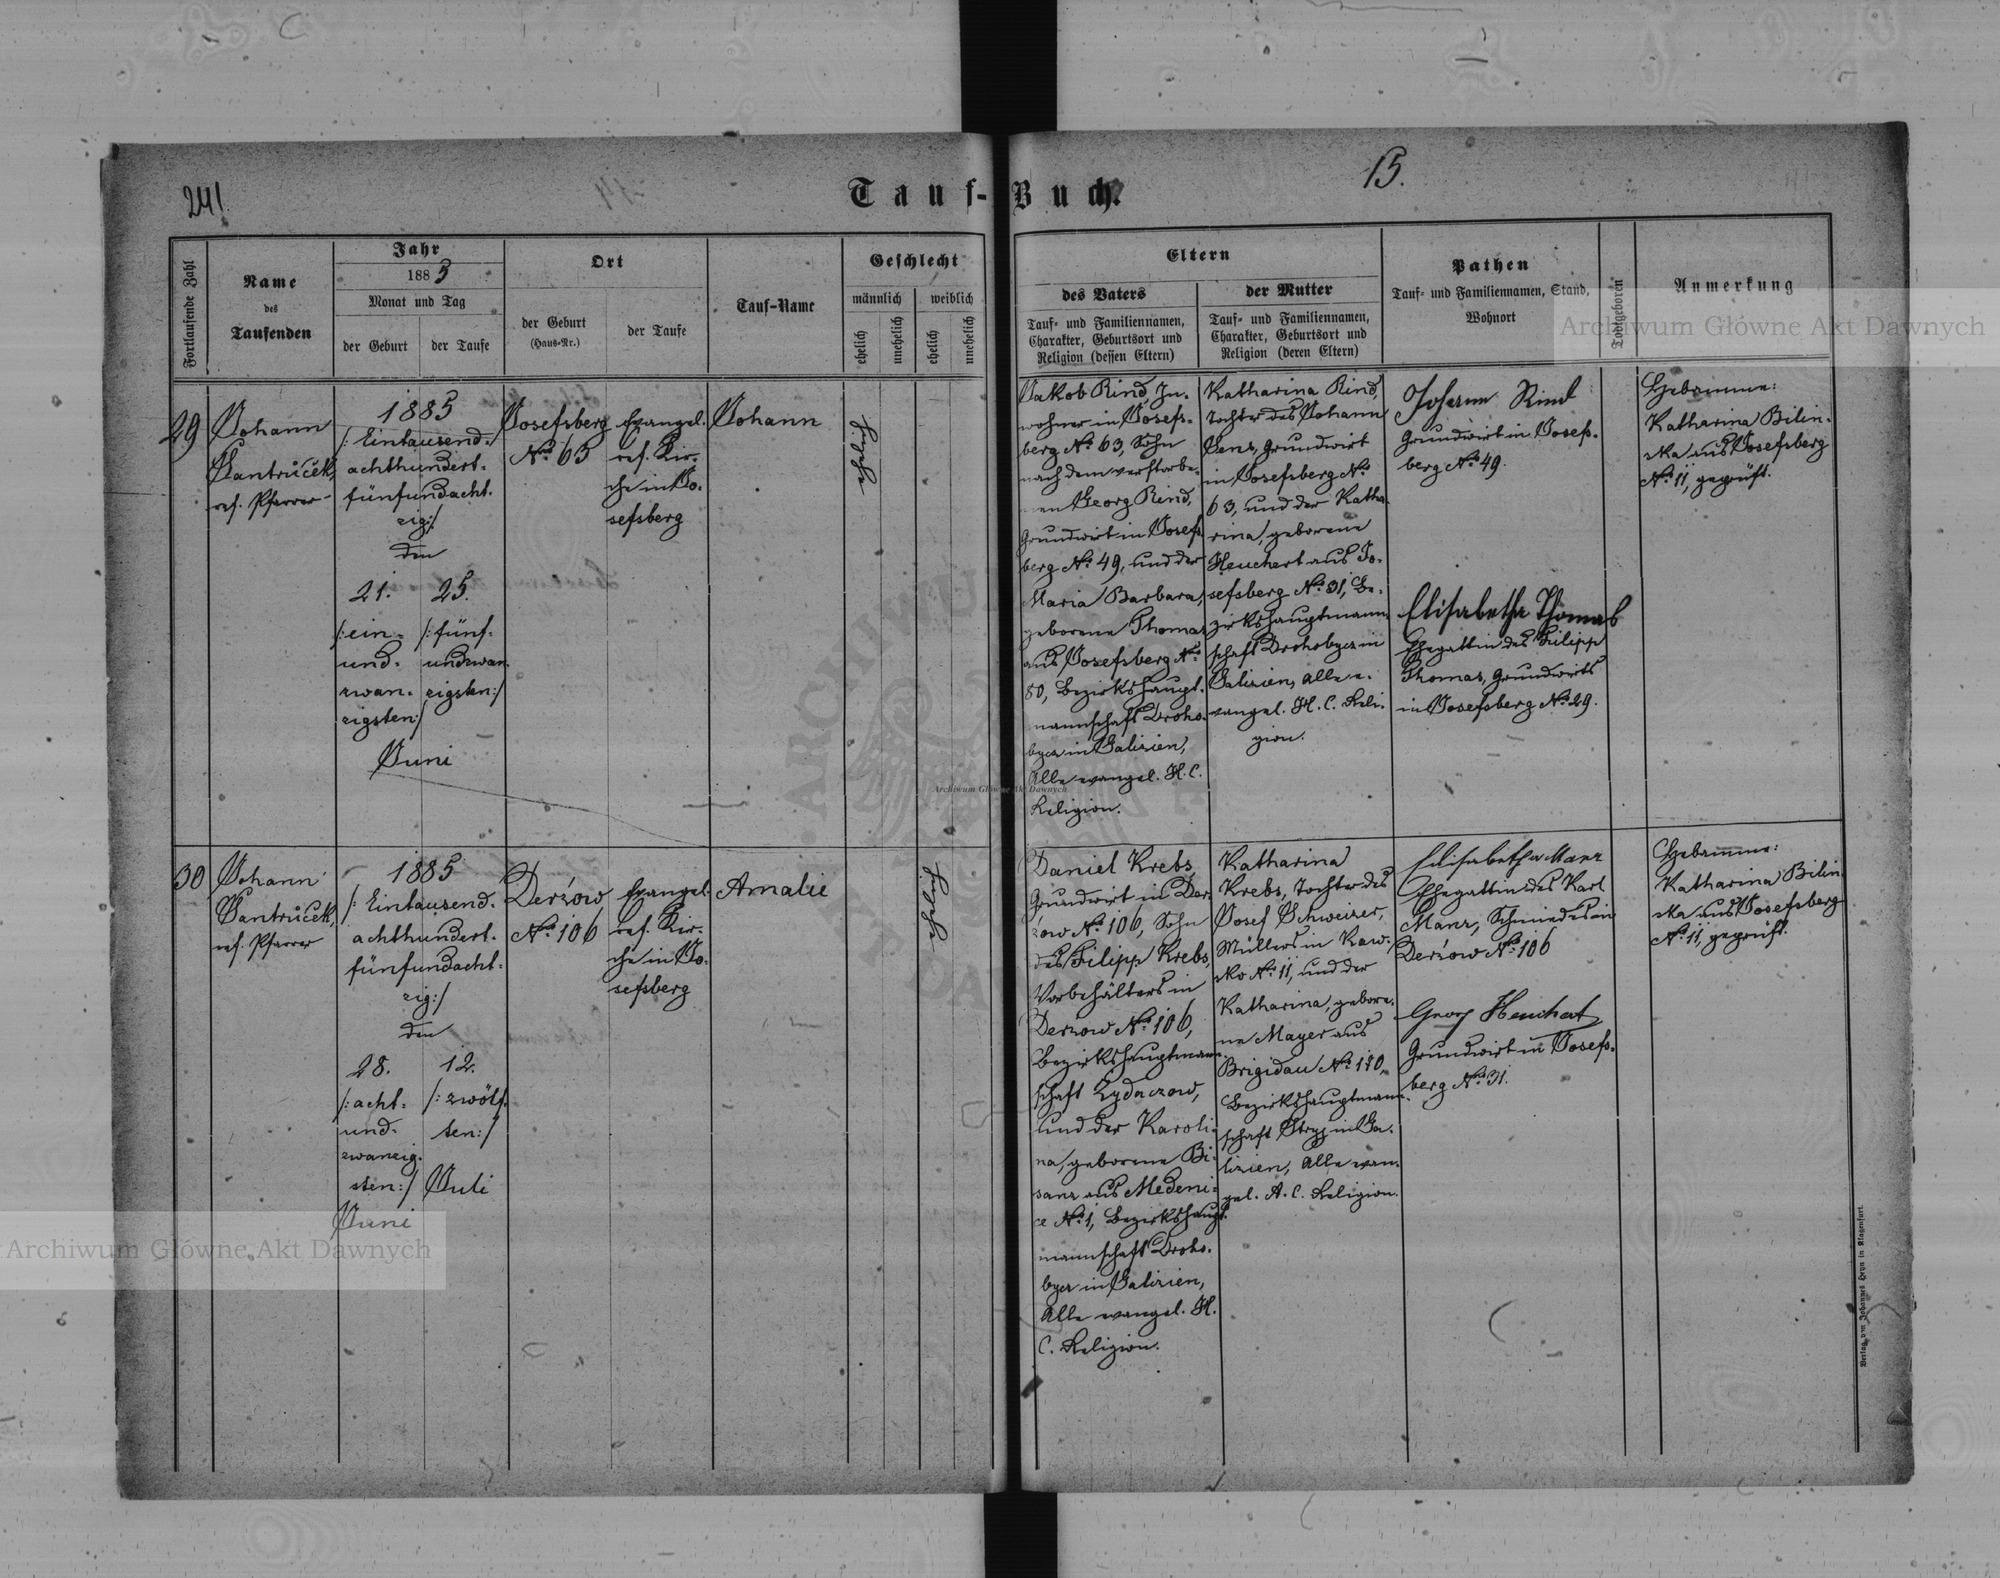 241
15.
Tauf-Buch.
Fortlaufende Zahl
Name
des
Taufenden
Jahr
1885
Monat und Tag
der Geburt
der Taufe
Ort
der Geburt
(Haus-Nr.)
der Taufe
Tauf-Name
Geschlecht
männlich
weiblich
ehelich
unehelich
ehelich
unehelich
Eltern
des Vaters
Tauf- und Familiennamen,
Charakter, Geburtsort und
Religion (dessen Eltern)
der Mutter
Tauf- und Familiennamen,
Charakter, Geburtsort und
Religion (deren Eltern)
Pathen
Tauf- und Familiennamen, Stand,
Wohnort
Todtgeboren
Anmerkung
29
Johann
Jantrůček,
ref. Pfarrer
1885
/: Eintausend-
achthundert-
fünfundacht-
zig:/
den
21.
/:ein-
und-
zwan-
zigsten:/
25.
/:fünf-
undzwan-
zigsten:/
Juni
Josefsberg
No 63
Evangel.
ref. Kir-
che in Jo-
sefsberg
Johann
ehelich
Jakob Rind, In-
wohner in Josefs-
berg No 63, Sohn
nach dem verstorbe-
nen Georg Rind,
Grundwirt in Josefs-
berg No 49, und der
Maria Barbara,
geborene Thomas
aus Josefsberg No
80, Bezirkshaupt-
mannschaft Droho-
bycz in Galizien,
Alle evangel. H. C.
Religion.
Katharina Rind,
Tochter des Johann
Jenz, Grundwirt
in Josefsberg No
63, und der Katha-
rina, geborene
Heuchert aus Jo-
sefsberg No 31, Be-
zirkshauptmann-
schaft Drohobycz in
Galizien, Alle e-
vangel. H. C. Reli-
gion.
Johann Rind
Grundwirt in Josefs-
berg No 49.
Elisabetha Thomas
Ehegattin des Filipp
Thomas, Grundwirts
in Josefsberg No 29.
Hebamme:
Katharina Bilin-
ska aus Josefsberg
No 11, geprüft.
30
Johann
Jantrůček,
ref. Pfarrer
1885
/: Eintausend-
achthundert-
fünfundacht-
zig:/
den
28.
/:acht-
und-
zwanzig-
sten:/
Juni
12.
/:zwölf-
ten:/
Juli
Derżow
No 106
Evangel.
ref. Kir-
che in Jo-
sefsberg
Amalie
ehelich
Daniel Krebs,
Grundwirt in Der-
żow No 106, Sohn
des Filipp Krebs,
Vorbehälters in
Derzow No 106,
Bezirkshauptmann-
schaft Zydaczow,
und der Karoli-
na, geborene Bi-
sanz aus Medeni-
ce No 1, Bezirkshaupt-
mannschaft Droho-
bycz in Galizien,
Alle evangel. H.
C. Religion.
Katharina
Krebs, Tochter des
Josef Schweizer,
Müllers in Raw-
sko No 11, und der
Katharina, gebore-
ne Mayer aus
Brigidau No 110,
Bezirkshauptmann-
schaft Stryj in Ga-
lizien, Alle evan-
gel. A. C. Religion.
Elisabetha Manz
Ehegattin des Karl
Manz, Schmiedes in
Derżow No 106
Georg Heuchert
Grundwirt in Josefs-
berg No 31.
Hebamme:
Katharina Bilin-
ska aus Josefsberg
No 11, geprüft.
Verlag von Johannes Heyn in Klagenfurt.
Archiwum Główne Akt Dawnych
Archiwum Główne Akt Dawnych
Archiwum Główne Akt Dawnych